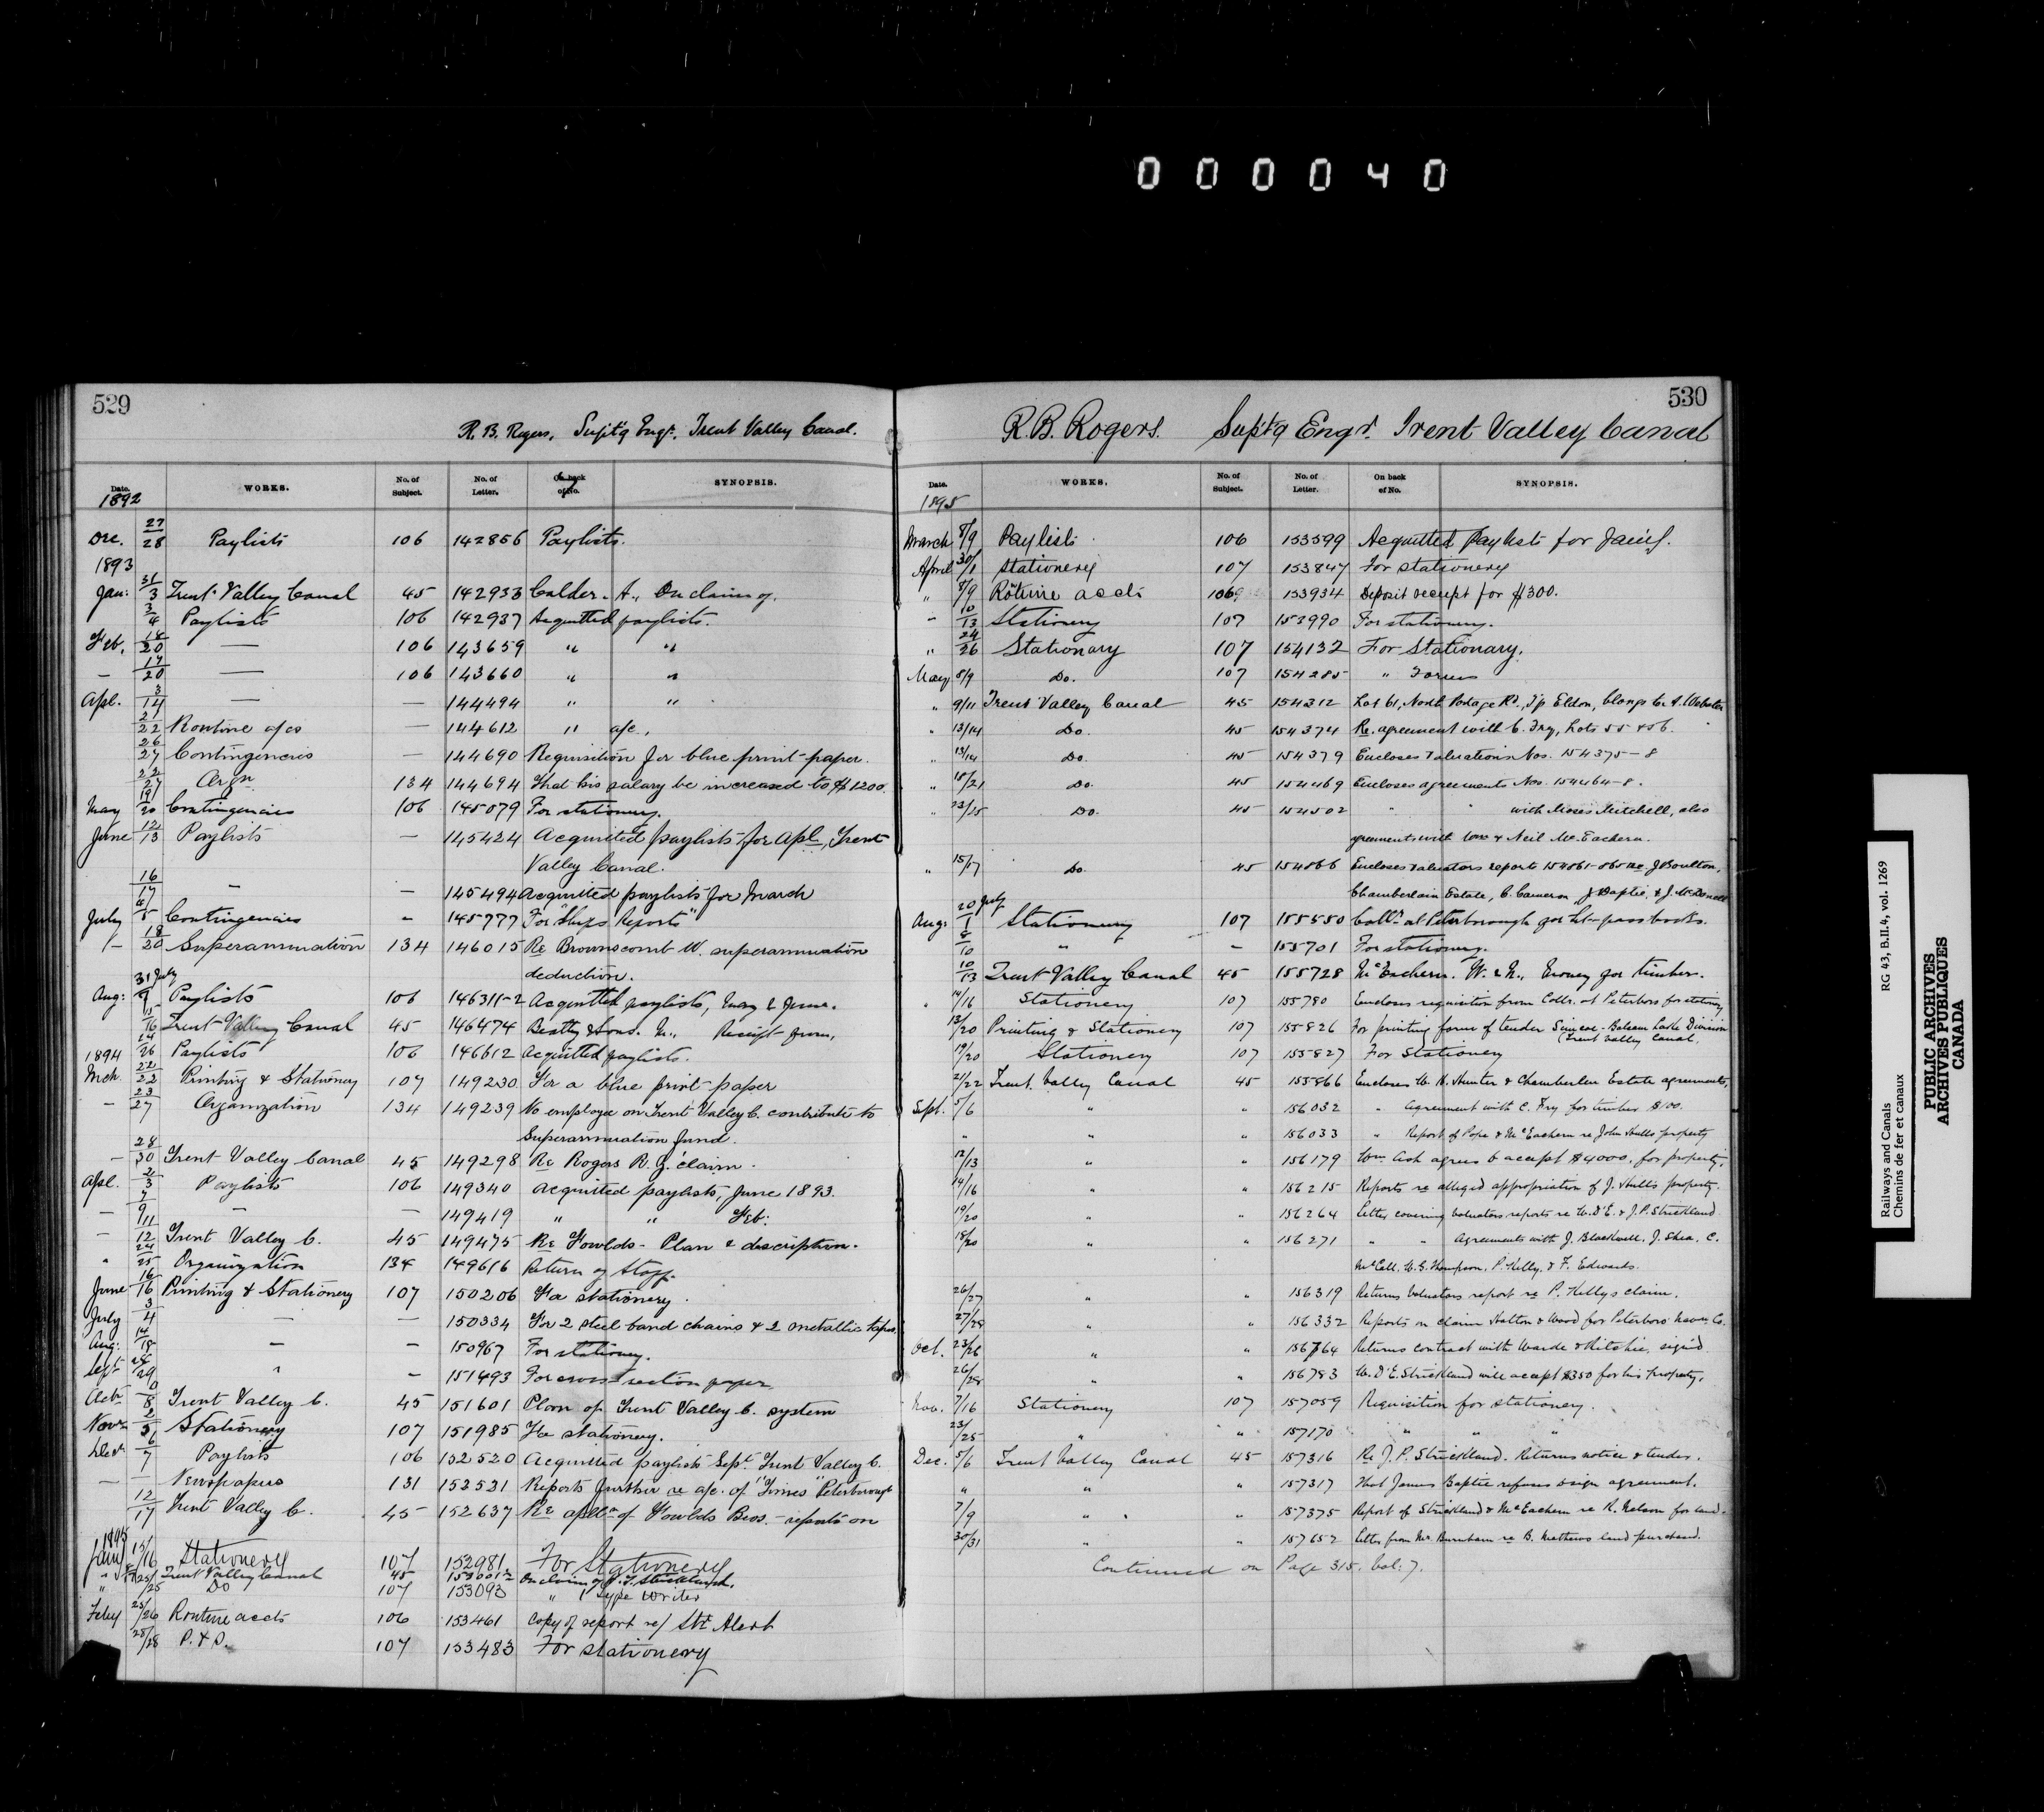 000040
529
R. B. Rogers, Supt'g Engr. Trent Valley Canal.
Date. WORKS. No. of Subject. No. of Letter. On back of No. SYNOPSIS.
1892
Dec. 27/28 Paylists 106 142856 Paylists.
1893
Jan: 31/3 Trent Valley Canal 45 142933 Calder. A., On claim of.
3/4 Paylists 106 142937 Acquitted paylists.
Feb. 18/20 — 106 143659 " "
— 17/20 — 106 143660 " "
Apl. 3/14 — — 144494 " "
21/22 Routine a/cs — 144612 " a/c.,
26/27 Contingencies — 144690 Requisition for blue print paper.
22/27 Orgn 134 144694 That his salary be increased to $1200.
May 19/20 Contingencies 106 145079 For stationery.
June 12/13 Paylists — 145424 Acquitted paylists for Apl., Trent
Valley Canal.
16/17 — — 145494 Acquitted paylists for March
July 4/5 Contingencies — 145777 For "Ships Reports"
1– 18/20 Superannuation 134 146015 Re Brownscomb W. superannuation
deduction.
Aug: 31 July/9 Paylists 106 146311-2 Acquitted paylists, May & June.
15/16 Trent Valley Canal 45 146474 Beatty & Sons. M., Receipt from,
24/26 Paylists 106 146612 Acquitted paylists.
1894
Mch. 22/22 Printing & Stationery 107 149230 For a blue print paper
— 23/27 Organization 134 149239 No employee on Trent Valley C. contribute to
Superannuation fund.
— 28/30 Trent Valley Canal 45 149298 Re Rogers R. G. claim.
Apl. 2/3 Paylists 106 149340 Acquitted paylists, June 1893.
— 7/9 — — 149419 " " Feb:
— 11/12 Trent Valley C. 45 149475 Re Fowlds - Plan & description.
" 24/25 Organization 134 149616 Return of Staff.
June 16/16 Printing & Stationery 107 150206 For stationery.
July 3/4 — — 150334 For 2 steel band chains & 2 metallic tapes
Aug: 14/15 — — 150967 For stationery.
Sept 28/29 " — 151493 For cross section paper
Octr 6/8 Trent Valley C. 45 151601 Plan of Trent Valley C. system
Novr 2/5 Stationery 107 151985 For stationery.
Decr 6/7 Paylists 106 152520 Acquitted paylists Sept. Trent Valley C.
— — Newspapers 131 152531 Reports further re a/c. of "Times" Peterborough
12/17 Trent Valley C. 45 152637 Re applcn of Fowlds Bros. - reports on
1895
Jany 15/16 Stationery 107 152981 For Stationery
" Trent Valley Canal 45 On claim of Strickland.
" /25 Do 107 153093 " 1 Type Writer
Feby 25/26 Routine accts 106 153461 Copy of report re/ Str Alert
28/28 P. & S. 107 153483 For stationery
530
R. B. Rogers. Sup't'g Engr. Trent Valley Canal
Date. WORKS. No. of Subject. No. of Letter. On back of No. SYNOPSIS.
1895
March 8/9 Paylists 106 153599 Acquitted Paylists for Jan'y.
April 30/1 Stationery 107 153847 For stationery
" 8/9 Routine accts 106 153934 Deposit receipt for $300.
– 10/13 Stationery 107 153990 For stationery.
" 24/26 Stationary 107 154132 For Stationary.
May 8/9 Do. 107 154285 " Forms
" 9/11 Trent Valley Canal 45 154312 Lot 61, North Portage Rd., T'p Eldon, belongs to A. Webster
" 13/14 Do. 45 154374 Re. agreement with C. Fry, Lots 55 & 56.
" 13/14 Do. 45 154379 Encloses valuations Nos. 154375-8
" 18/21 Do. 45 154469 Encloses agreements Nos. 154464-8.
" 23/25 Do. 45 154502 " " with Moses Mitchell, also
agreements with Wm & Neil McEachern.
" 15/17 Do. 45 154866 Encloses valuators reports 154861-865 re. J Boulton,
Chamberlain Estate, C. Cameron, J. Baptie, & J. McDonell
Aug: 20 July/1 Stationery 107 155550 Collr. at Peterborough for let- pass books.
8/10 " – 155701 For stationery.
10/13 Trent Valley Canal 45 155728 McEachern. W. & N., money for timber.
" 14/16 Stationery 107 155780 Encloses requisition from Collr. at Peterboro for stationery
13/20 Printing & Stationery 107 155826 For printing form of tender Simcoe-Balsam Lake Division
(Trent Valley Canal.
19/20 Stationery 107 155827 For Stationery
21/22 Trent Valley Canal 45 155866 Encloses W. H. Hunter & Chamberlen Estate agreements,
Sept. 5/6 " " 156032 " Agreement with C. Fry for timber $100.
" " " 156033 " Report of Pope & McEachern re John Hulls property
12/13 " " 156179 Wm. Ash agrees to accept $4000. for property.
14/16 " " 156215 Reports re alleged appropriation of J. Hulls property.
19/20 " " 156264 Letter covering valuators reports re W. D'E. & J. P. Strickland
18/20 " " 156271 " " Agreements with J. Blackwell, J. Shea, C.
McCall, W. G. Thompson, P. Kelly, & F. Edwards.
26/27 " " 156319 Returns valuators report re P. Kellys claim.
27/28 " " 156332 Reports on claim Hatton & Wood for Peterboro' Co.
Oct. 23/26 " " 156764 Returns contract with Warde & Ritchie, signed.
26/28 " " 156783 W. D'E. Strickland will accept $350 for his property.
Nov. 7/16 Stationery 107 157059 Requisition for stationery.
23/25 " " 157170 " " "
Dec. 5/6 Trent Valley Canal 45 157316 Re J. P. Strickland. Returns notice & tender.
" " " 157317 That James Baptie refuses to sign agreement.
7/9 " " 157375 Report of Strickland & McEachern re R. Nelson for land.
30/31 " " 157652 Letter from Mr. Burnham re B. Mathews land purchased.
Continued on Page 315. Vol: 7.
Railways and Canals RG 43, B.II.4, vol. 1269
Chemins de fer et canaux
PUBLIC ARCHIVES
ARCHIVES PUBLIQUES
CANADA